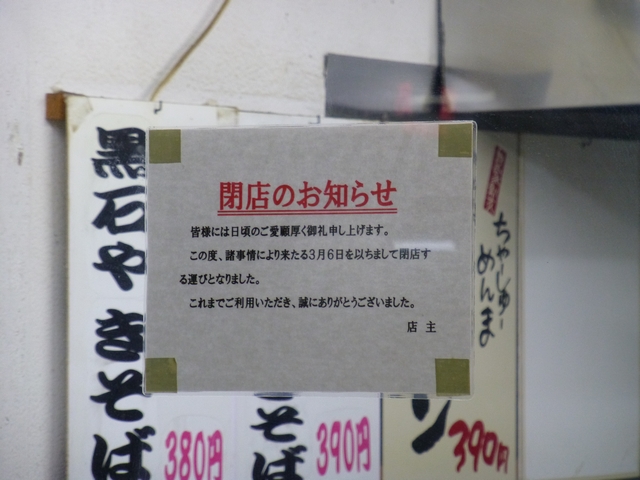 閉店のお知らせ
皆様には日頃のご愛顧厚く御礼申し上げます。
この度、諸事情により来たる3月6日を以ちまして閉店す
る運びとなりました。
これまでご利用いただき、誠にありがとうございました。
店 主
黒石やきそば
380円
きそば
390円
ちゃーしゅー
めんま
390円